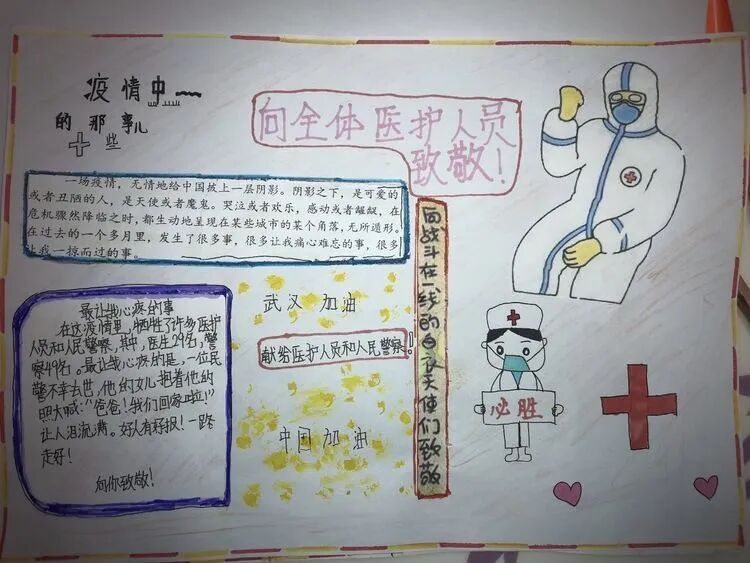 疫情中
的那事儿
些
向全体医护人员
致敬！
一场疫情，无情地给中国披上一层阴影。阴影之下，是可爱的
或者丑陋的人，是天使或者魔鬼。哭泣或者欢乐，感动或者龌龊，在
危机骤然降临之时，都生动地呈现在某些城市的某个角落，无所遁形。
在过去的一个多月里，发生了很多事，很多让我痛心难忘的事，很多
让我一掠而过的事。
向战斗在一线的白衣天使们致敬
最让我心疼的事
在这疫情里，牺牲了许多医护
人员和人民警察，其中，医生29名，警
察49名。最让我心疼的是，一位民
警不幸去世，他的女儿抱着他的
照大喊：“爸爸！我们回家啦！”
让人泪流满。好人有好报！一路
走好！
向你致敬！
武汉 加油
献给医护人员和人民警察！
中国 加油
必胜